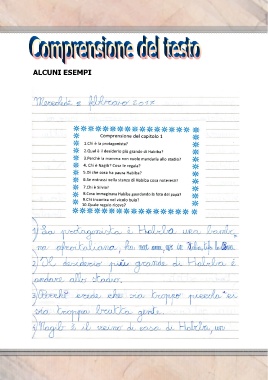 Comprensione del testo
ALCUNI ESEMPI
8 febbraio 2017
Comprensione del capitolo 1
1.Chi è la protagonista?
2.Qual è il desiderio più grande di Habiba?
3.Perché la mamma non vuole mandarla allo stadio?
4. Chi è Nagib? Cosa le regala?
5.Di che cosa ha paura Habiba?
6.Se entrassi nella stanza di Habiba cosa noteresti?
7.Chi è
8.Cosa immagina Habiba guardando le foto del papà?
9.Chi incontra nel vicolo buio?
10.Quale regalo riceve?
1) La protagonista è Habiba una bambi
na afghana, ha
2) Il desiderio più grande di Habiba è
andare allo stadio.
3) Perché crede che sia troppo piccola e ci
sia troppa brutta gente.
4) Nagib è il vicino di casa di Habiba, un